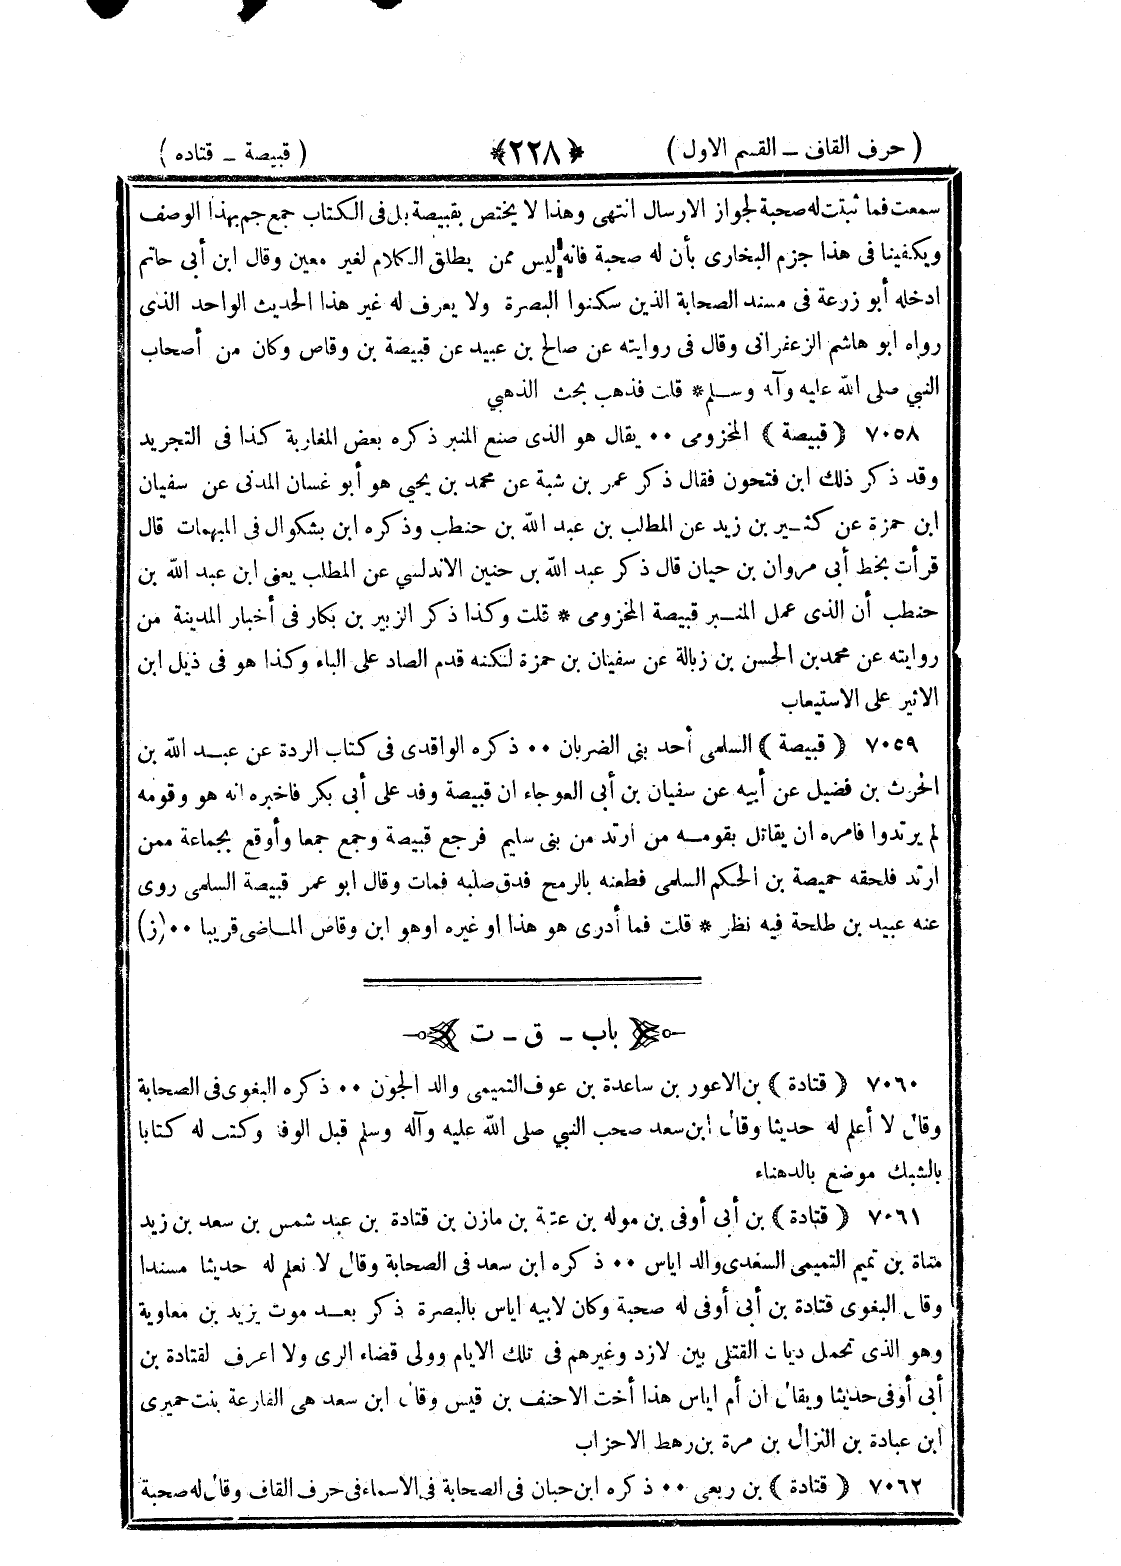 ( حرف القاف ــ القسم الاول ) ﴿٢٢٨﴾ ( قبيصة ــ قتاده )
سمعت فما ثبتت له صحبة لجواز الارسال انتهى وهذا لا يختص بقبيصة بل فى الكتاب جمع جم بهذا الوصف
ويكفينا فى هذا جزم البخارى بأن له صحبة فانه ليس ممن يطلق الكلام لغير معين وقال ابن أبى حاتم
ادخله أبو زرعة فى مسند الصحابة الذين سكنوا البصرة ولا يعرف له غير هذا الحديث الواحد الذى
رواه ابو هاشم الزعفرانى وقال فى روايته عن صالح بن عبيد عن قبيصة بن وقاص وكان من أصحاب
النبي صلى الله عليه وآله وسلم * قلت فذهب بحث الذهبي
٧٠٥٨ ( قبيصة ) المخزومى ٠٠ يقال هو الذى صنع المنبر ذكره بعض المغاربة كذا فى التجريد
وقد ذكر ذلك ابن فتحون فقال ذكر عمر بن شبة عن محمد بن يحيي هو أبو غسان المدنى عن سفيان
ابن حمزة عن كثير بن زيد عن المطلب بن عبد الله بن حنطب وذكره ابن بشكوال فى المبهمات قال
قرأت بخط أبى مروان بن حيان قال ذكر عبد الله بن حنين الاندلسي عن المطلب يعنى ابن عبد الله بن
حنطب أن الذى عمل المنبر قبيصة المخزومى * قلت وكذا ذكر الزبير بن بكار فى أخبار المدينة من
روايته عن محمد بن الحسن بن زبالة عن سفيان بن حمزة لكنه قدم الصاد على الباء وكذا هو فى ذيل ابن
الاثير على الاستيعاب
٧٠٥٩ ( قبيصة ) السلمى أحد بنى الضربان ٠٠ ذكره الواقدى فى كتاب الردة عن عبد الله بن
الحرث بن فضيل عن أبيه عن سفيان بن أبى العوجاء ان قبيصة وفد على أبى بكر فاخبره انه هو وقومه
لم يرتدوا فامره ان يقاتل بقومه من ارتد من بنى سليم فرجع قبيصة وجمع جمعا وأوقع بجماعة ممن
ارتد فلحقه حميصة بن الحكم السلمى فطعنه بالرمح فدق صلبه فمات وقال ابو عمر قبيصة السلمى روى
عنه عبيد بن طلحة فيه نظر * قلت فما أدرى هو هذا او غيره اوهو ابن وقاص الماضى قريبا ٠٠ (ز)
باب ــ ق ــ ت
٧٠٦٠ ( قتادة ) بن الاعور بن ساعدة بن عوف التميمى والد الجون ٠٠ ذكره البغوى فى الصحابة
وقال لا أعلم له حديثا وقال ابن سعد صحب النبي صلى الله عليه وآله وسلم قبل الوفا وكتب له كتابا
بالشبك موضع بالدهناء
٧٠٦١ ( قتادة ) بن أبى أوفى بن موله بن عتبة بن مازن بن قتادة بن عبد شمس بن سعد بن زيد
مناة بن تميم التميمى السعدى والد اياس ٠٠ ذكره ابن سعد فى الصحابة وقال لا نعلم له حديثا مسندا
وقال البغوى قتادة بن أبى أوفى له صحبة وكان لابيه اياس بالبصرة ذكر بعد موت يزيد بن معاوية
وهو الذى تحمل ديات القتلى بين لازد وغيرهم فى تلك الايام وولى قضاء الرى ولا اعرف لقتادة بن
أبى أوفى حديثا ويقال ان أم اياس هذا أخت الاحنف بن قيس وقال ابن سعد هى الفارعة بنت حميرى
ابن عبادة بن النزال بن مرة بن رهط الاحزاب
٧٠٦٢ ( قتادة ) بن ربعى ٠٠ ذكره ابن حبان فى الصحابة فى الاسماء فى حرف القاف وقال له صحبة